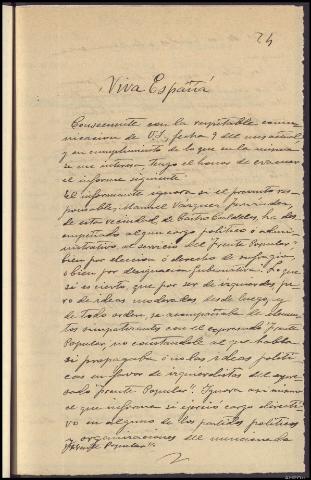 24
¡Viva España!
Consecuente con la respetable comu-
nicacion de V.S., fecha 9 del mes actual
y en cumplimiento de lo que en la misma
se me interesa, tengo el honor de evacuar
el informe siguiente
El informante ignora si el presunto res-
ponsable, Manuel Vazquez
de esta vecindad de Castro Caldelas, ha des-
empeñado algun cargo politico o admi-
nistrativo al servicio del Frente Popular"
bien por eleccion ó derecho de sufragio
o bien por designacion gubernativa. Lo que
si es cierto, que por ser de izquierdas, pe-
ro de ideas moderadas desde luego, y
de todo orden, se acompañaba de elemen-
tos simpatizantes con el expresado Frente
Popular, no constandole al que habla
si propagaba ó no las ideas politi-
cas en favor de izquierdistas del expre-
sado Frente Popular". Ignora asi mismo
el que informa si ejerció cargo directi-
vo en alguno de los partidos politicos
y organizaciones del mencionado
Frente Popular"